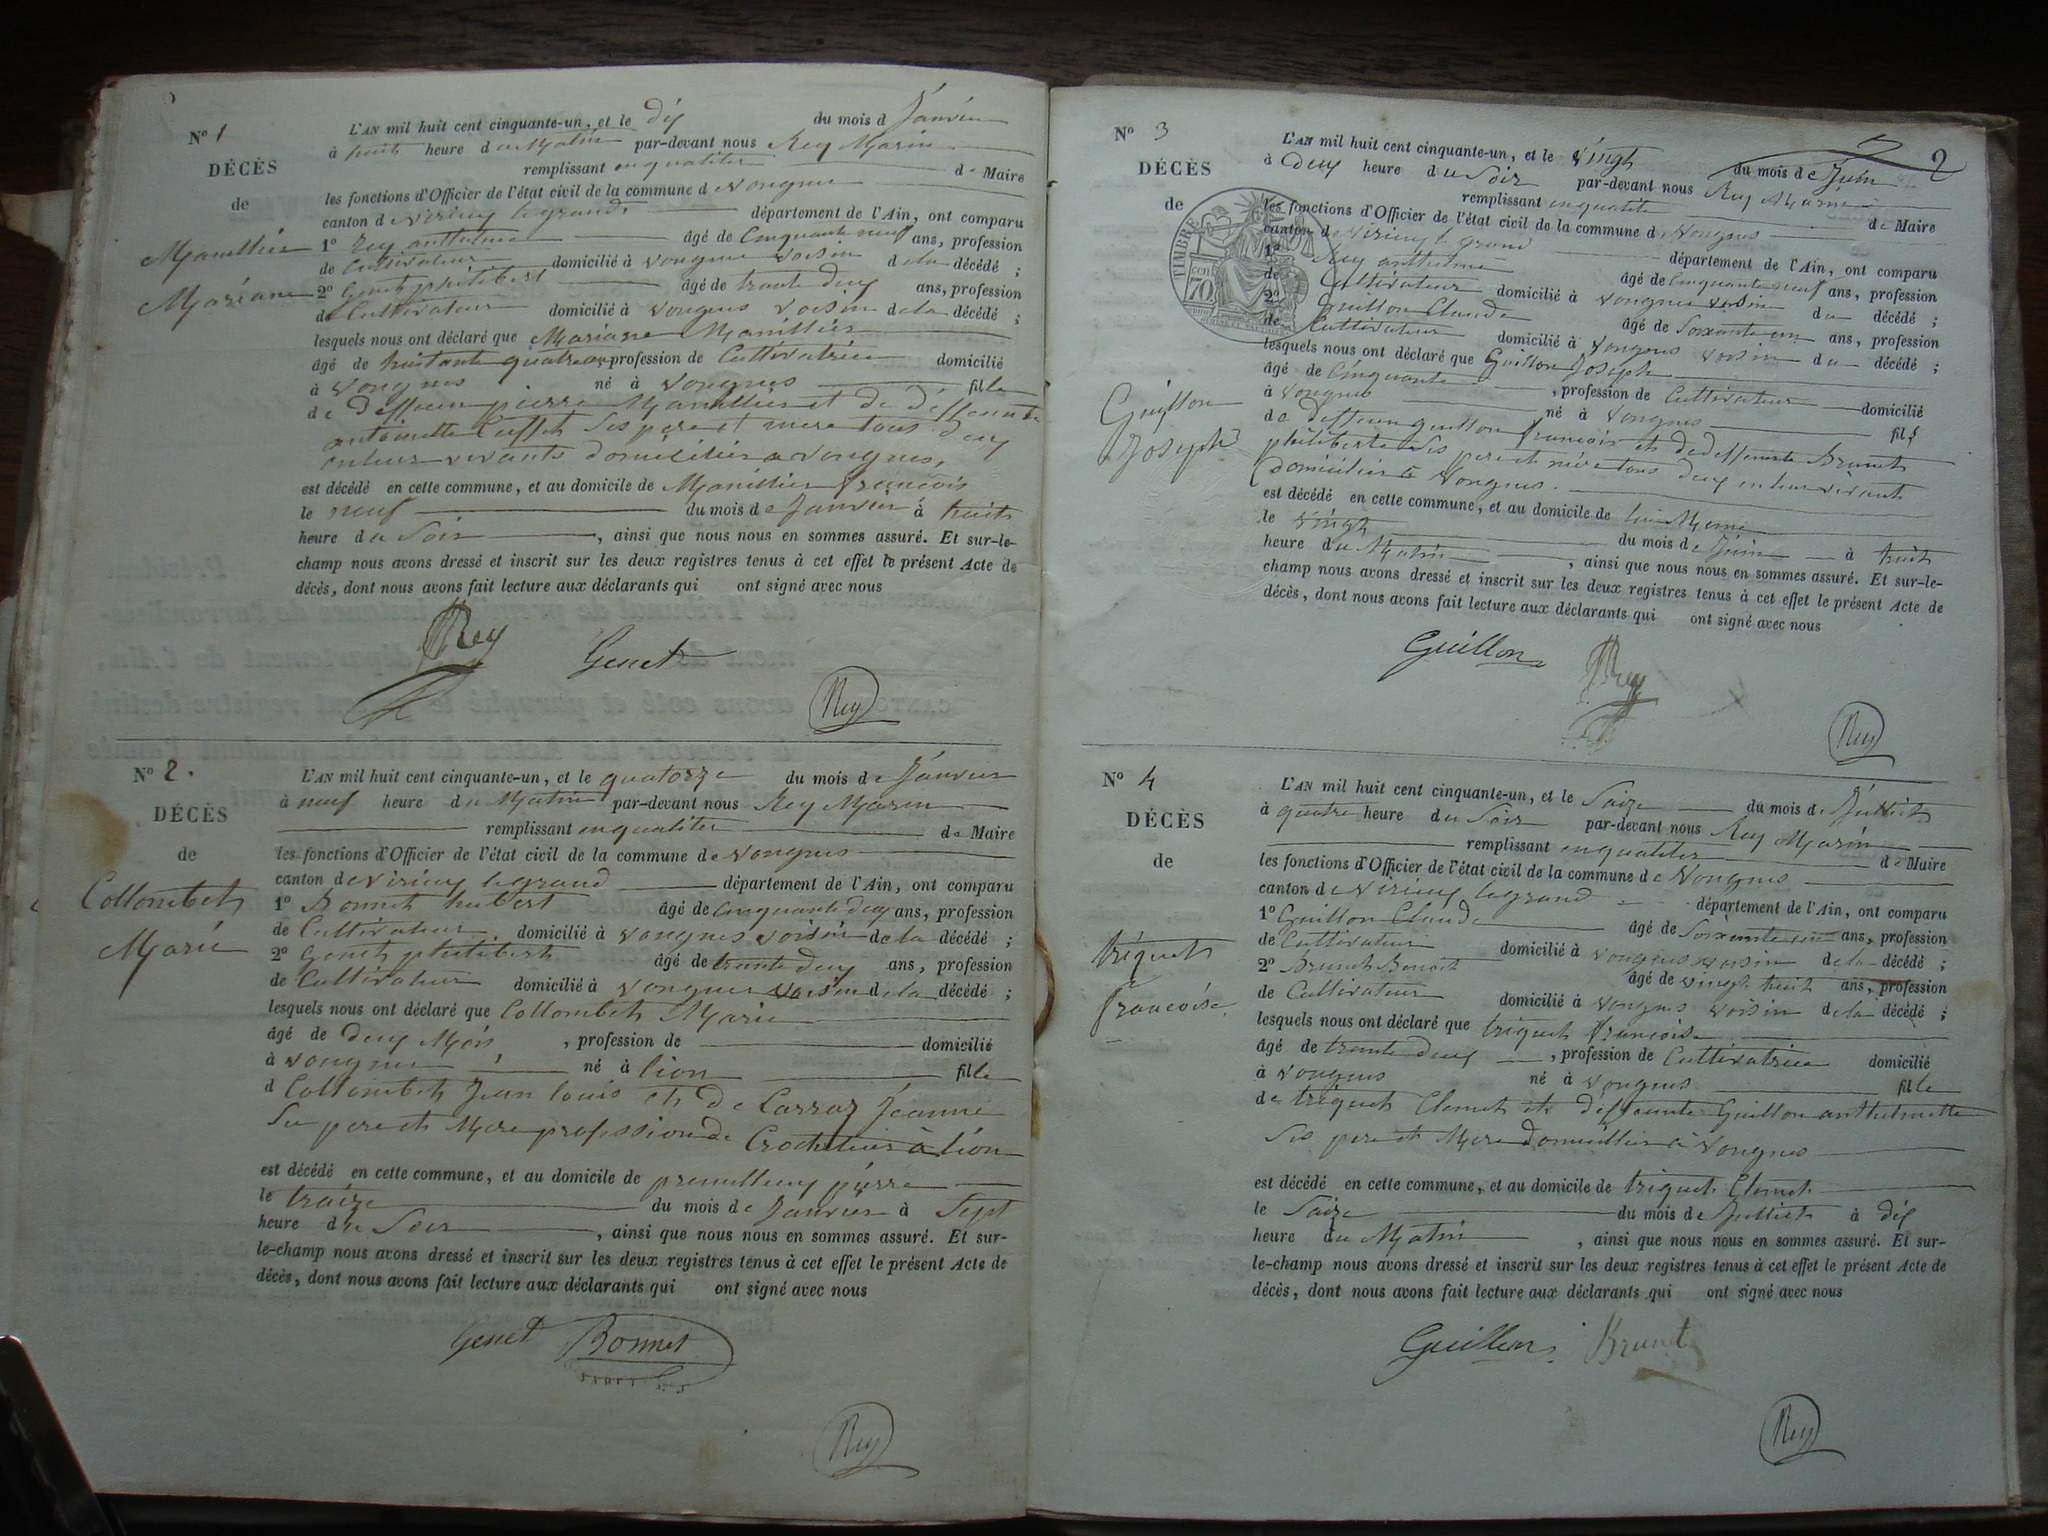 Nº 1
DÉCÈS
de
Manillier
Mariane
L'AN mil huit cent cinquante-un, et le dix du mois de Janvier
à huit heure du Matin par-devant nous Rey Marin
remplissant en qualiter de Maire
les fonctions d'Officier de l'état civil de la commune de Vongnes
canton de virieu le grand département de l'Ain, ont comparu
1º Rey anthelme âgé de Cinquante neuf ans, profession
de Cultivateur domicilié à vongnes voisin de la décédé ;
2º Genet philibert âgé de trante deux ans, profession
de Cultivateur domicilié à vongnes voisin de la décédé ;
lesquels nous ont déclaré que Mariane Manillier
âgé de huitante quatre ans profession de Cultivatrice domicilié
à Vongnes né à Vongnes fille
de deffeun pierre Manillier et de deffeunte
antoinette Cusset ses pere et mere tous deux
enleur vivants domiciliés a vongnes,
est décédé en cette commune, et au domicile de Manillier françois
le neuf du mois de Janvier à huit
heure du Soir, ainsi que nous nous en sommes assuré. Et sur-le-
champ nous avons dressé et inscrit sur les deux registres tenus à cet effet le présent Acte de
décès, dont nous avons fait lecture aux déclarants qui ont signé avec nous
Rey Genet
Rey
Nº 2.
DÉCÈS
de
Collombet
Marie
L'AN mil huit cent cinquante-un, et le quatorze du mois de Janvier
à neuf heure du Matin par-devant nous Rey Marin
remplissant en qualiter de Maire
les fonctions d'Officier de l'état civil de la commune de vongnes
canton de virieu le grand département de l'Ain, ont comparu
1º Bonnet hubert âgé de Cinquante deux ans, profession
de Cultivateur domicilié à vongnes voisin de la décédé ;
2º Genet philibert âgé de trante deux ans, profession
de Cultivateur domicilié à vongnes voisin de la décédé ;
lesquels nous ont déclaré que Collombet Marie
âgé de deux Mois, profession de domicilié
à vongnes né à lion fille
d Collombet Jean louis et de Carraz Jeanne
Ses pere et Mere profession de Crocheteur à lion
est décédé en cette commune, et au domicile de pierre
le traize du mois de Janvier à Sept
heure du Soir, ainsi que nous nous en sommes assuré. Et sur-
le-champ nous avons dressé et inscrit sur les deux registres tenus à cet effet le présent Acte de
décès, dont nous avons fait lecture aux déclarants qui ont signé avec nous
Genet Bonnet
Rey
2
Nº 3
DÉCÈS
de
TIMBRE
70
Guillon
Joseph
L'AN mil huit cent cinquante-un, et le vingt du mois de Juin
à deux heure du Soir par-devant nous Rey Marin
remplissant en qualite de Maire
les fonctions d'Officier de l'état civil de la commune de Vongnes
canton de virieu le grand département de l'Ain, ont comparu
1º Rey anthelme âgé de Cinquante neuf ans, profession
de Cultivateur domicilié à vongnes voisin du décédé ;
2º Guillon Claude âgé de Soixante un ans, profession
de Cultivateur domicilié à vongnes voisin du décédé ;
lesquels nous ont déclaré que Guillon Joseph
âgé de Cinquante, profession de Cultivateur domicilié
à Vongnes né à Vongnes fils
de deffeun guillon françois et de deffeunte Brunet
philiberte ses pere et mère tous deux en leur vivant
domiciliés à Vongnes.
est décédé en cette commune, et au domicile de lui Meme
le vingt du mois de Juin à huit
heure du Matin, ainsi que nous nous en sommes assuré. Et sur-le-
champ nous avons dressé et inscrit sur les deux registres tenus à cet effet le présent Acte de
décès, dont nous avons fait lecture aux déclarants qui ont signé avec nous
Guillon Rey
Rey
Nº 4
DÉCÈS
de
triquet
françoise
L'AN mil huit cent cinquante-un, et le Saize du mois de Julliet
à quatre heure du Soir par-devant nous Rey Marin
remplissant en qualiter de Maire
les fonctions d'Officier de l'état civil de la commune de Vongnes
canton de virieu le grand département de l'Ain, ont comparu
1º Guillon Claude âgé de Soixante un ans, profession
de Cultivateur domicilié à vongnes voisin de la décédé ;
2º Brunet Benoit âgé de vingt huit ans, profession
de Cultivateur domicilié à vongnes voisin de la décédé ;
lesquels nous ont déclaré que triquet françoise
âgé de trante deux, profession de Cultivatrice domicilié
à vongnes né à vongnes fille
de triquet Clemet et deffeunte Guillon anthelmette
Ses pere et Mere domicilliés à Vongnes
est décédé en cette commune, et au domicile de triquet Clemet
le Saize du mois de Julliet à dix
heure du Matin, ainsi que nous nous en sommes assuré. Et sur-
le-champ nous avons dressé et inscrit sur les deux registres tenus à cet effet le présent Acte de
décès, dont nous avons fait lecture aux déclarants qui ont signé avec nous
Guillon Brunet
Rey